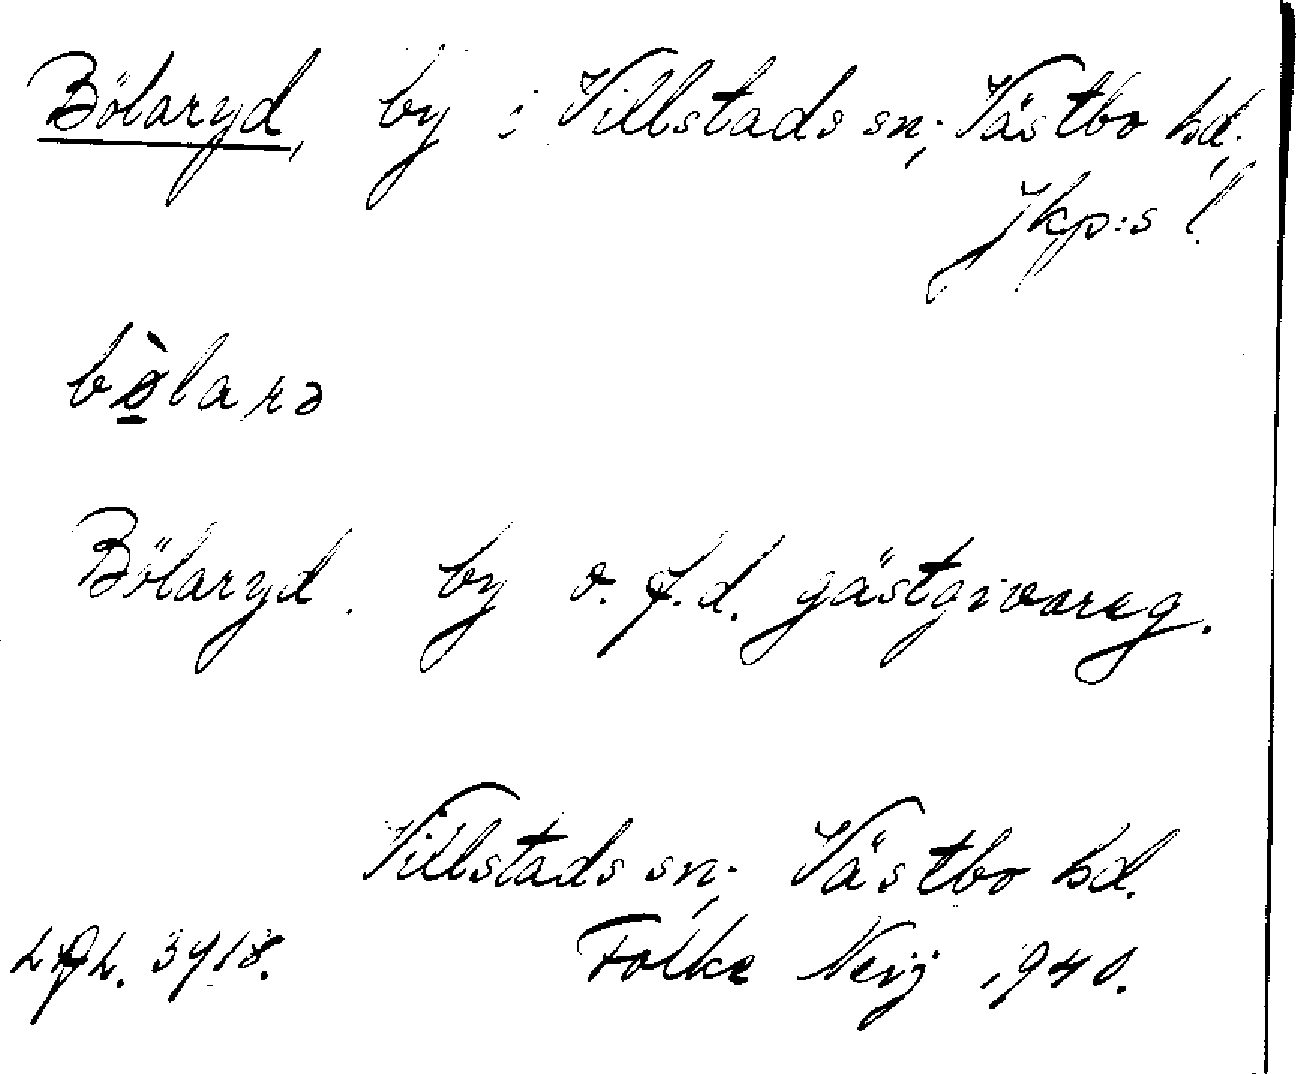 Bölaryd, by i Villstads sn; Västbo hd,
Jkp:s l.
bø̀larə
Bölaryd. by o. f.d. gästgivareg.
Villstads sn; Västbo hd.
Folke Neij 1940.